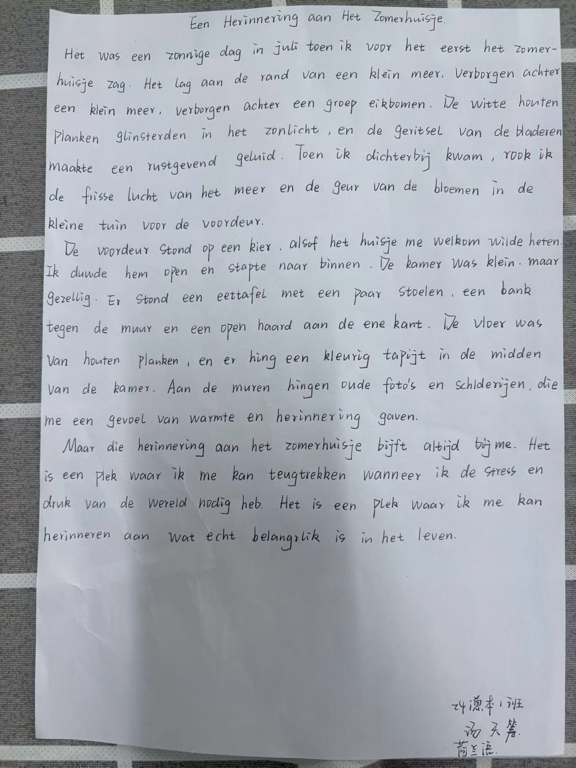 Een Herinnering aan Het Zomerhuisje.
Het was een zonnige dag in juli toen ik voor het eerst het zomer-
huisje zag. Het lag aan de rand van een klein meer, verborgen achter
een klein meer, verborgen achter een groep eikbomen. De witte houten
planken glinsterden in het zonlicht, en de geritsel van de bladeren
maakte een rustgevend geluid. Toen ik dichterbij kwam, rook ik
de frisse lucht van het meer en de geur van de bloemen in de
kleine tuin voor de voordeur.
De voordeur stond op een kier, alsof het huisje me welkom wilde heten.
Ik duwde hem open en stapte naar binnen. De kamer was klein, maar
gezellig. Er stond een eettafel met een paar stoelen, een bank
tegen de muur en een open haard aan de ene kant. De vloer was
van houten planken, en er hing een kleurig tapijt in de midden
van de kamer. Aan de muren hingen oude foto's en schlderijen, die
me een gevoel van warmte en herinnering gaven.
Maar die herinnering aan het zomerhuisje bijft altijd bij me. Het
is een plek waar ik me kan teugtrekken wanneer ik de stress en
druk van de wereld nodig heb. Het is een plek waar ik me kan
herinneren aan wat echt belangrlik is in het leven.
24 本1班
汤天
荷兰语